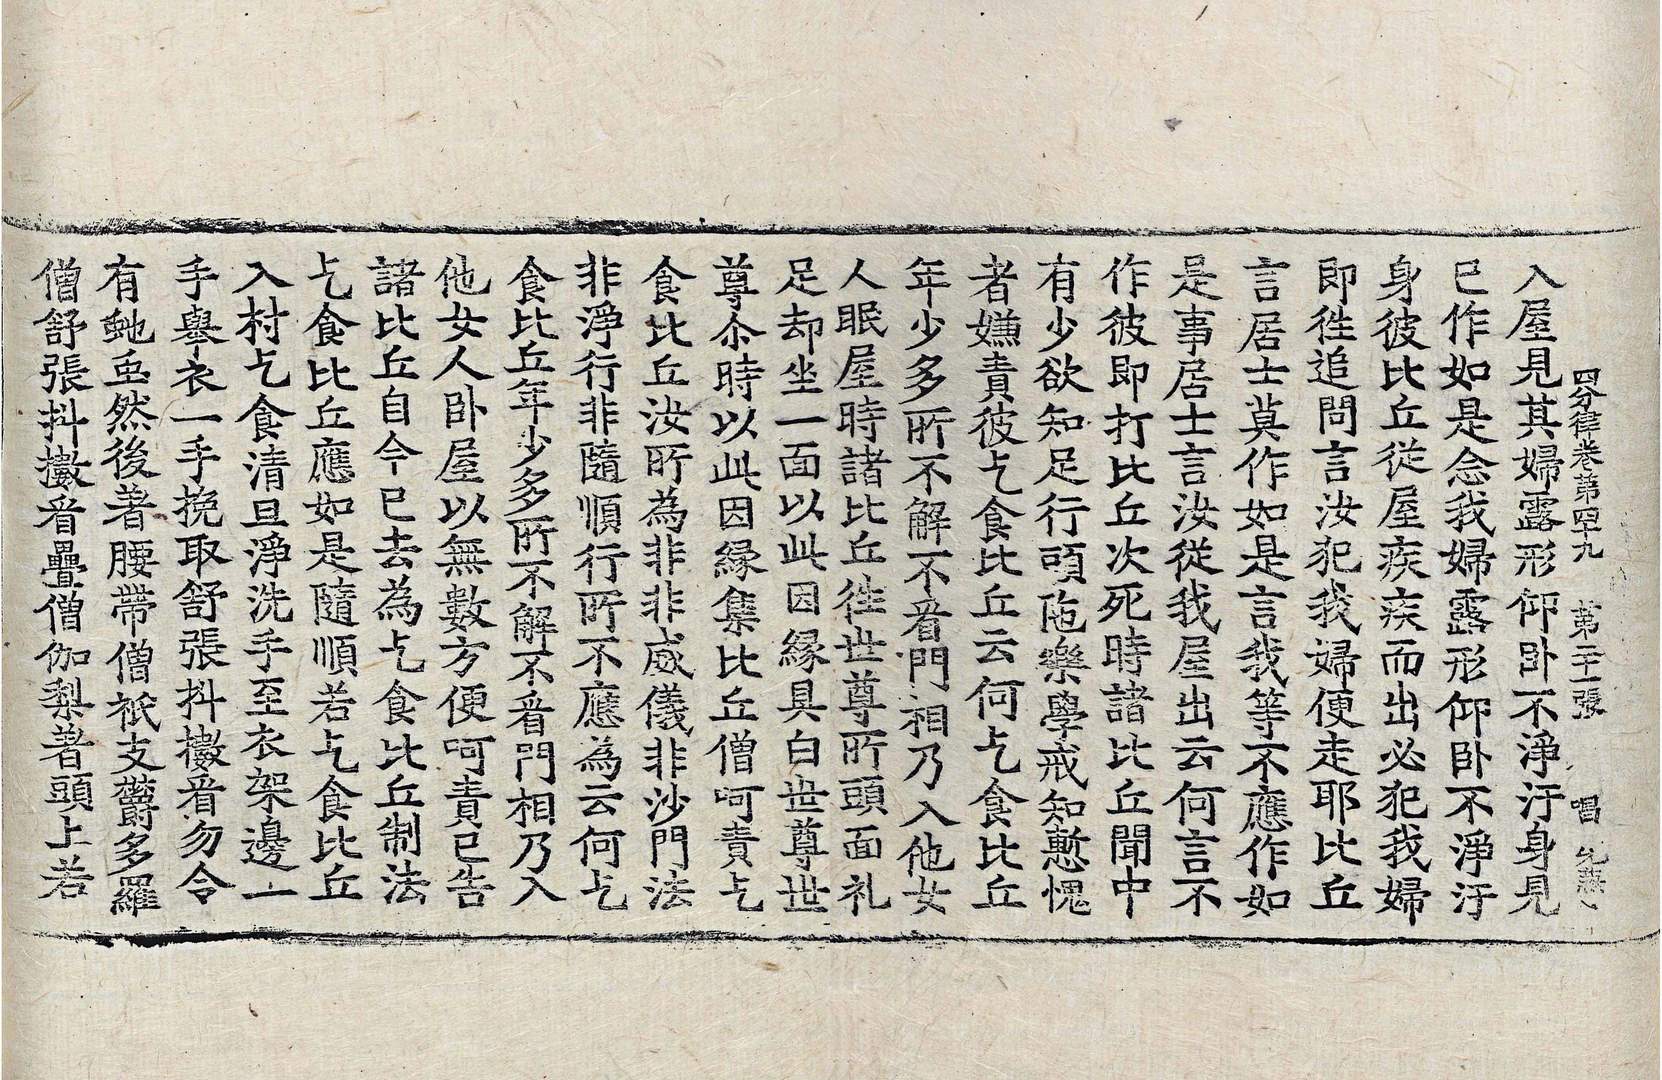 四分律卷第四十九 第二十一張 唱
入屋見其婦露形仰卧不淨汙身見
已作如是念我婦露形仰卧不淨汙
身彼比丘從屋疾疾而出必犯我婦
即徃追問言汝犯我婦便走耶比丘
言居士莫作如是言我等不應作如
是事居士言汝從我屋出云何言不
作彼即打比丘次死時諸比丘聞中
有少欲知足行頭陁樂學戒知慙愧
者嫌責彼乞食比丘云何乞食比丘
年少多所不解不看門相乃入他女
人眠屋時諸比丘徃世尊所頭面礼
足却坐一面以此因緣具白世尊世
尊尒時以此因緣集比丘僧呵責乞
食比丘汝所為非非威儀非沙門法
非淨行非隨順行所不應為云何乞
食比丘年少多所不解不看門相乃入
他女人卧屋以無數方便呵責已告
諸比丘自今已去為乞食比丘制法
乞食比丘應如是隨順若乞食比丘
入村乞食清旦淨洗手至衣架邊一
手舉衣一手挽取舒張抖擻看勿令
有虵虫然後著腰帶僧祇支欝多羅
僧舒張抖擻看疊僧伽梨著頭上若